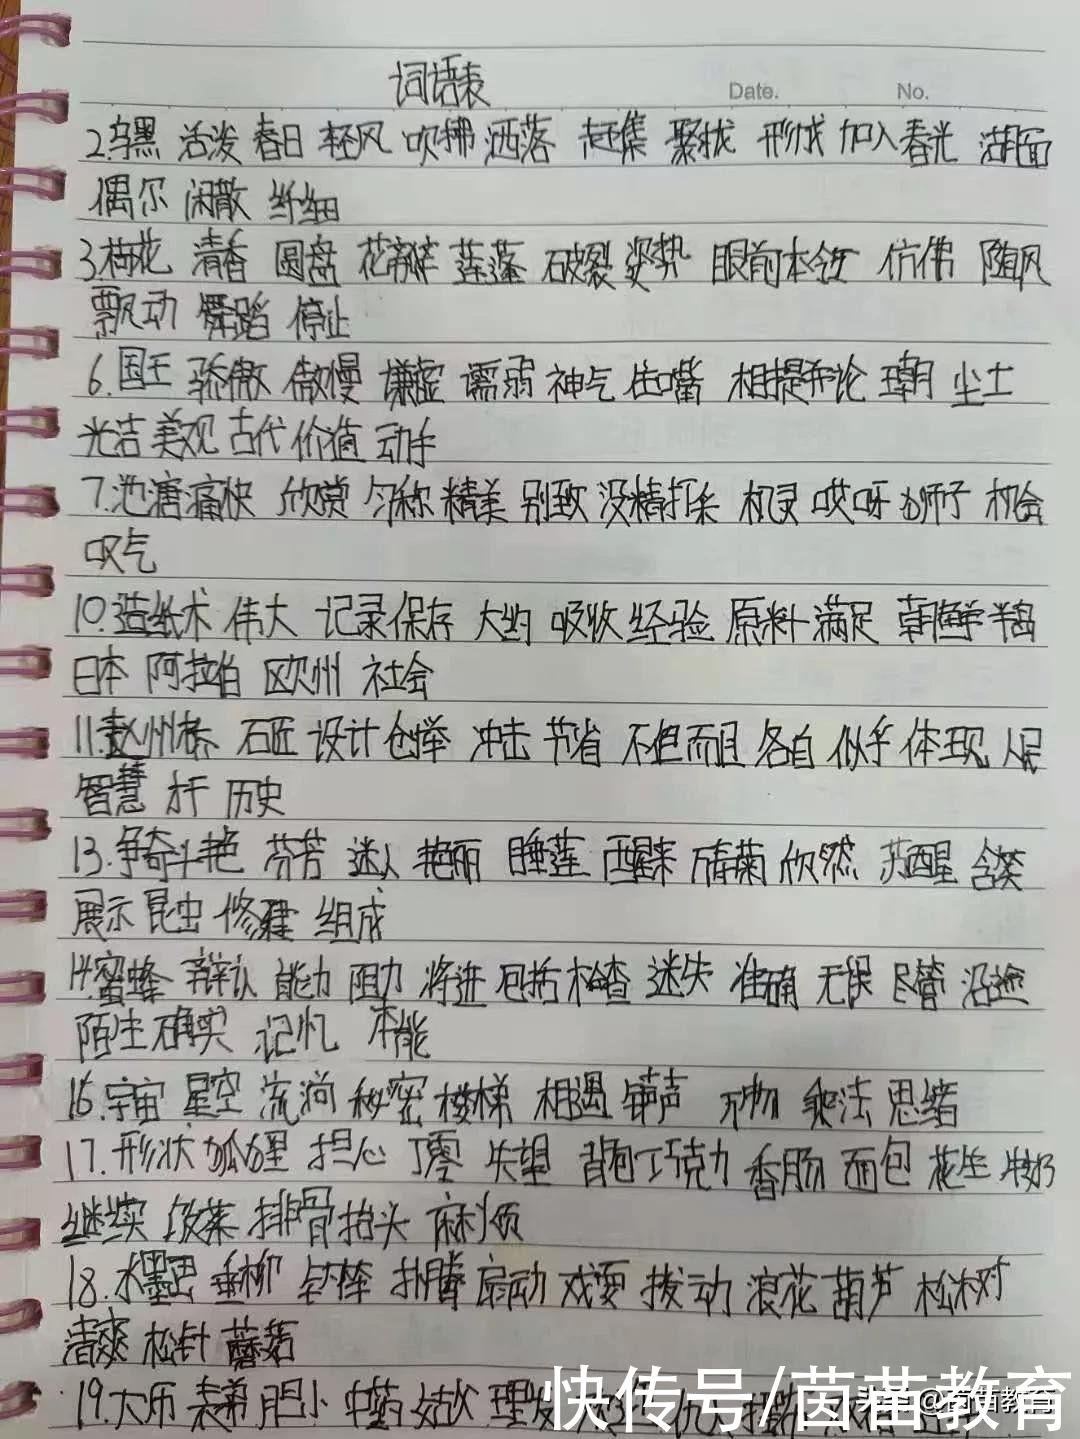 词语表
Date. No.
2.乌黑 活泼 春日 轻风 吹拂 洒落 赶集 聚拢 形成 加入 春光 湖面
偶尔 闲散 纤细
3.荷花 清香 圆盘 花瓣 莲蓬 破裂 姿势 眼前 本领 仿佛 随风
飘动 舞蹈 停止
6.国王 骄傲 傲慢 谦虚 懦弱 神气 住嘴 相提并论 王朝 尘土
光洁 美观 古代 价值 动手
7.池塘 痛快 欣赏 匀称 精美 别致 没精打采 机灵 哎呀 狮子 机会
叹气
10.造纸术 伟大 记录 保存 大约 吸收 经验 原料 满足 朝鲜半岛
日本 阿拉伯 欧州 社会
11.赵州桥 石匠 设计 创举 冲击 节省 不但 而且 各自 似乎 体现 人民
智慧 才干 历史
13.争奇斗艳 芬芳 迷人 艳丽 睡莲 醒来 欣然 苏醒 含笑
展示 昆虫 修建 组成
14.蜜蜂 辩认 能力 阻力 将进 包括 检查 迷失 准确 无误 尽管 沿途
陌生 确实 记忆 本能
16.宇宙 星空 流淌 秘密 楼梯 相遇 万物 乘法 思绪
17.形状 狐狸 担心 丁零 失望 背包 巧克力 香肠 面包 花生 牛奶
继续 饭菜 排骨 抬头 麻利
18.水墨 垂柳 扑腾 扇动 戏耍 拨动 浪花 葫芦 松树
清爽 松针 蘑菇
19.大历 表弟 胆小 中药 理发
快传号/茵苗教育